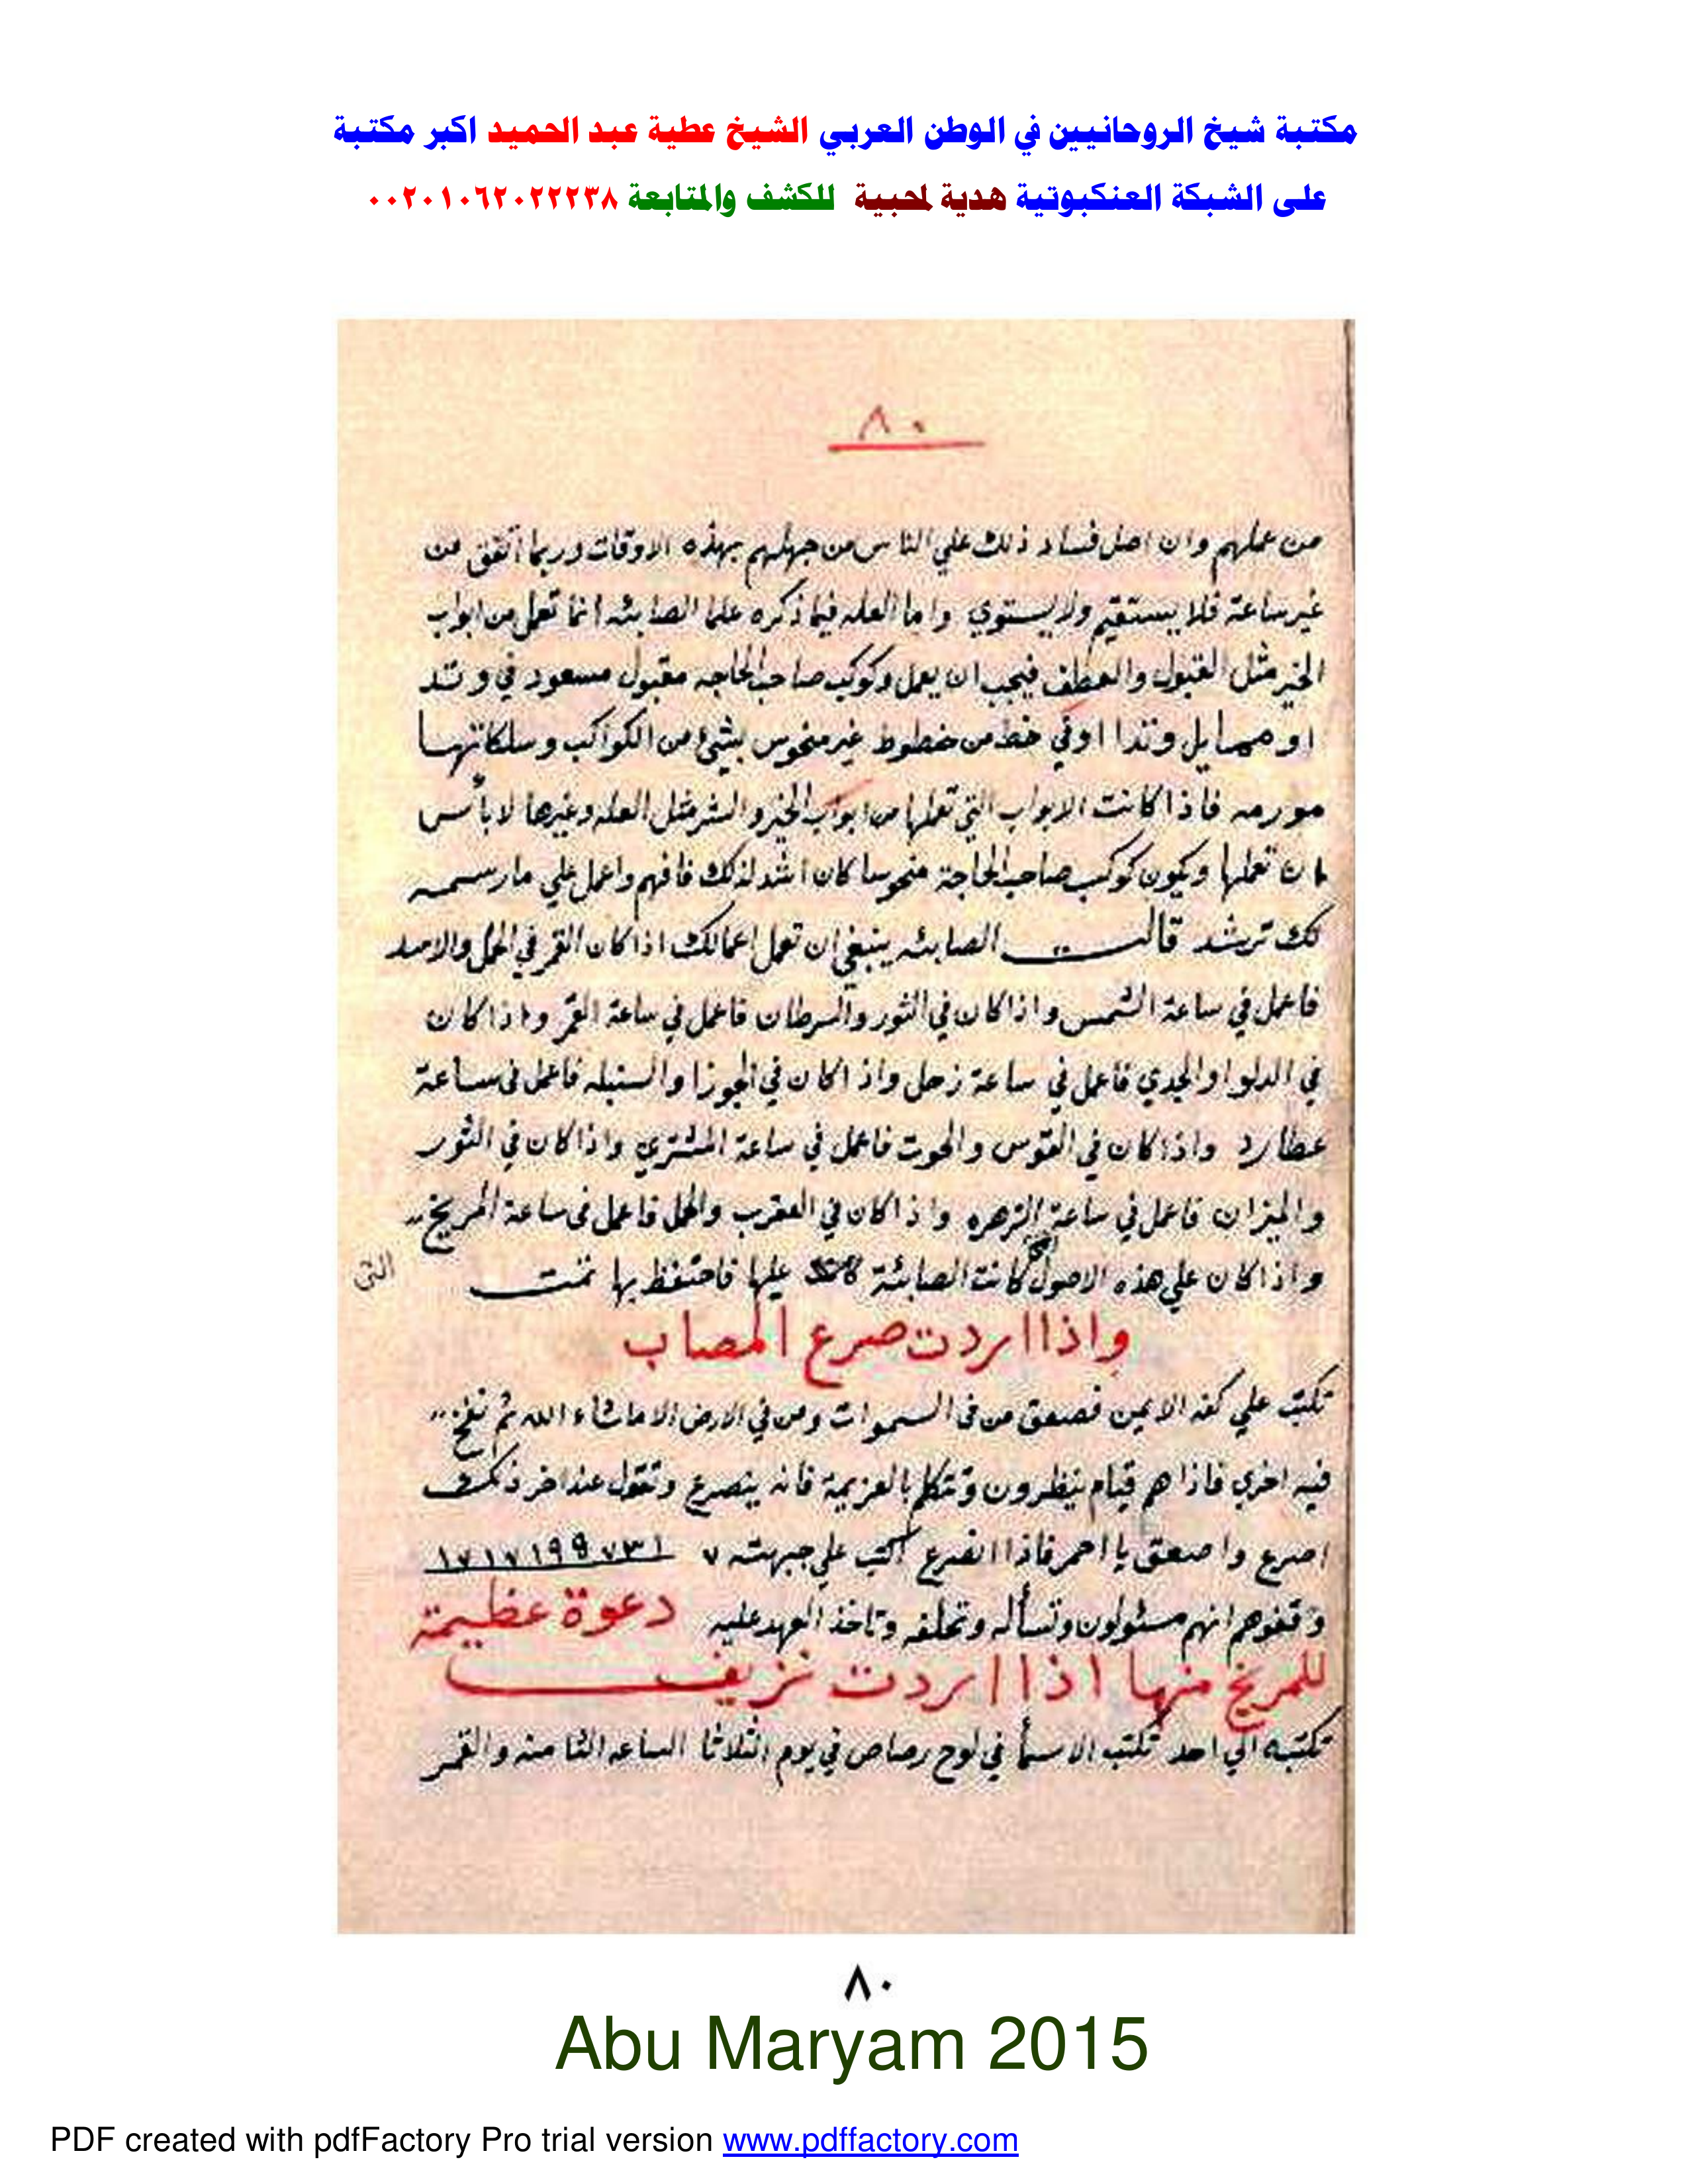 مكتبة شيخ الروحانيين في الوطن العربي الشيخ عطية عبد الحميد اكبر مكتبة
على الشبكة العنكبوتية هدية لمحبية للكشف والمتابعة ٠٠٢٠١٠٦٢٠٢٢٢٣٨
٨٠
من عملهم وان اصل فساد ذلك علي الناس من جهلهم بهذه الاوقات وربما اتفق من
غير ساعة فلا يستقيم ولا يستوي واما العله فيما ذكره علما الصابئه انما تعمل من ابواب
الخير مثل القبول والعطف فيجب ان يعمل وكوكب صاحب الحاجه مقبول مسعود في وتد
او وتدا اوفي خط من خطوط غير منحوس بشئ من الكواكب
فاذا كانت الابواب التي تعملها من ابواب الخير والشر مثل العله وغيرها لا بأس
ان تعملها ويكون كوكب صاحب الحاجة منحوسا كان اشد لذلك فافهم واعمل علي ما رسمه
لك ترشد قالت الصابئه ينبغي ان تعمل اعمالك اذا كان القمر في الحمل والاسد
فاعمل في ساعة الشمس واذا كان في الثور والسرطان فاعمل في ساعة القمر واذا كان
في الدلو او الجدي فاعمل في ساعة زحل واذا كان في الجوزا والسنبله فاعمل في ساعة
عطارد واذا كان في القوس والحوت فاعمل في ساعة المشتري واذا كان في الثور
والميزان فاعمل في ساعة الزهره واذا كان في العقرب والحمل فاعمل في ساعة المريخ
واذا كان علي هذه الاصول كانت الصابئة عليها فاحتفظ بها تمت
التي
واذا اردت صرع المصاب
تكتب علي كفه الايمن فصعق من في السموات ومن في الارض الا ما شاء الله ثم نفخ
فيه اخري فاذا هم قيام ينظرون وتتكلم بالعزيمة فانه ينصرع وتقول عند اخر ذلك
اصرع واصعق يا احمر فاذا انصرع اكتب علي جبهته ٧ ١٧١٧١٩٩٧٣١
وقفوهم انهم مسئولون وتسأله وتحلفه وتاخذ العهد عليه دعوة عظيمة
للمريخ منها اذا اردت نزيف
تكتبه الي احد تكتب الاسمأ في لوح رصاص في يوم الثلاثا الساعه الثامنه والقمر
٨٠
Abu Maryam 2015
PDF created with pdfFactory Pro trial version www.pdffactory.com